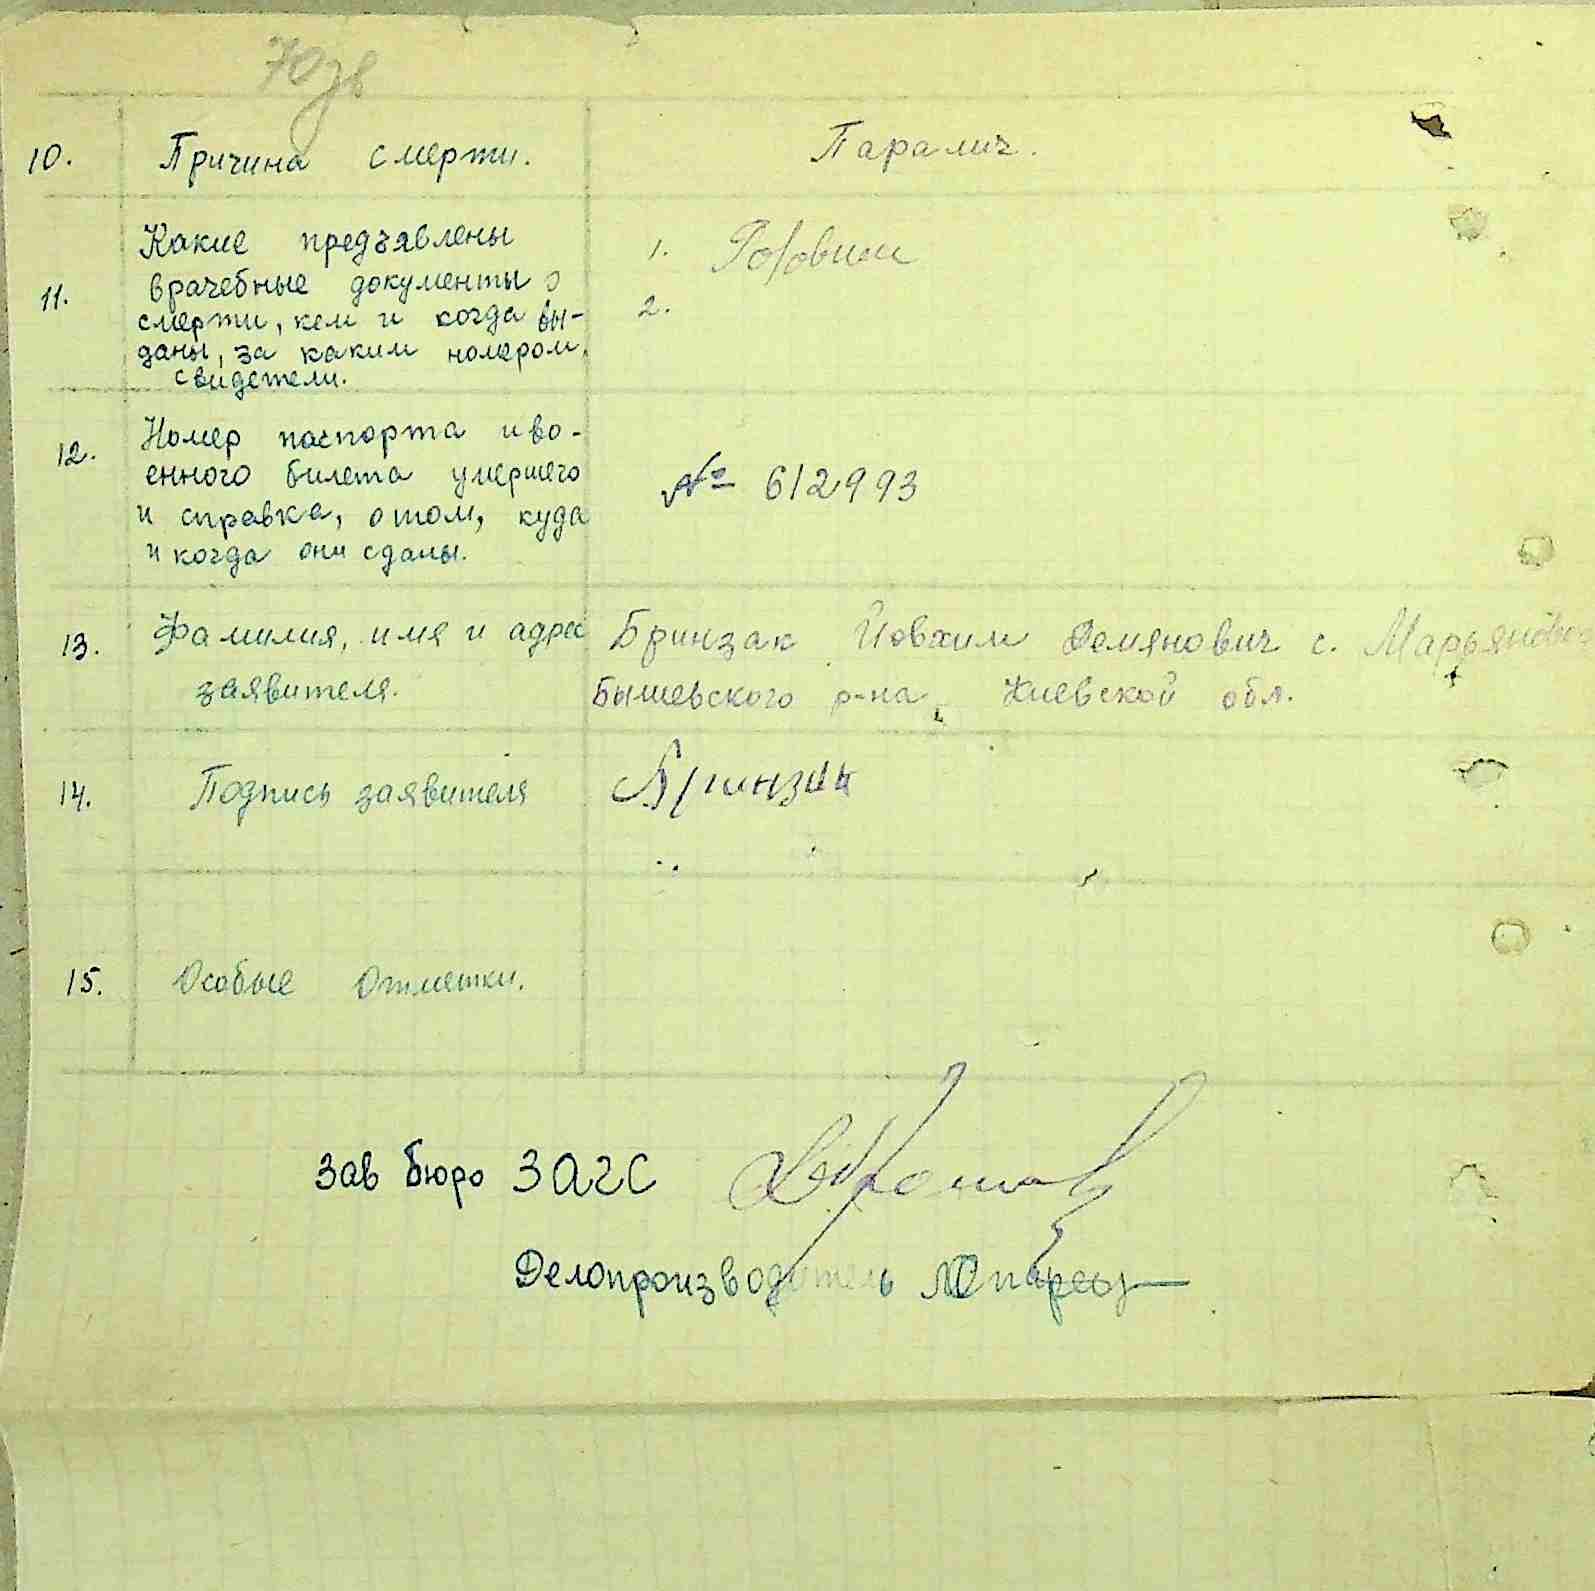 70зв
10. Причина смерти. Паралич.
11. Какие предъявлены
врачебные документы о
смерти, кем и когда вы-
даны, за каким номером,
свидетели.
1.
2.
12. Номер паспорта и во-
енного билета умершего
и справка, о том, куда
и когда они сданы.
№ 612993
13. Фамилия, имя и адрес
заявителя.
Бринзак Йовхим Демянович с. Марьяновка
Бышевского р-на Киевской обл.
14. Подпись заявителя Бринзак
15. Особые отметки.
Зав бюро ЗАГС
Делопроизводитель